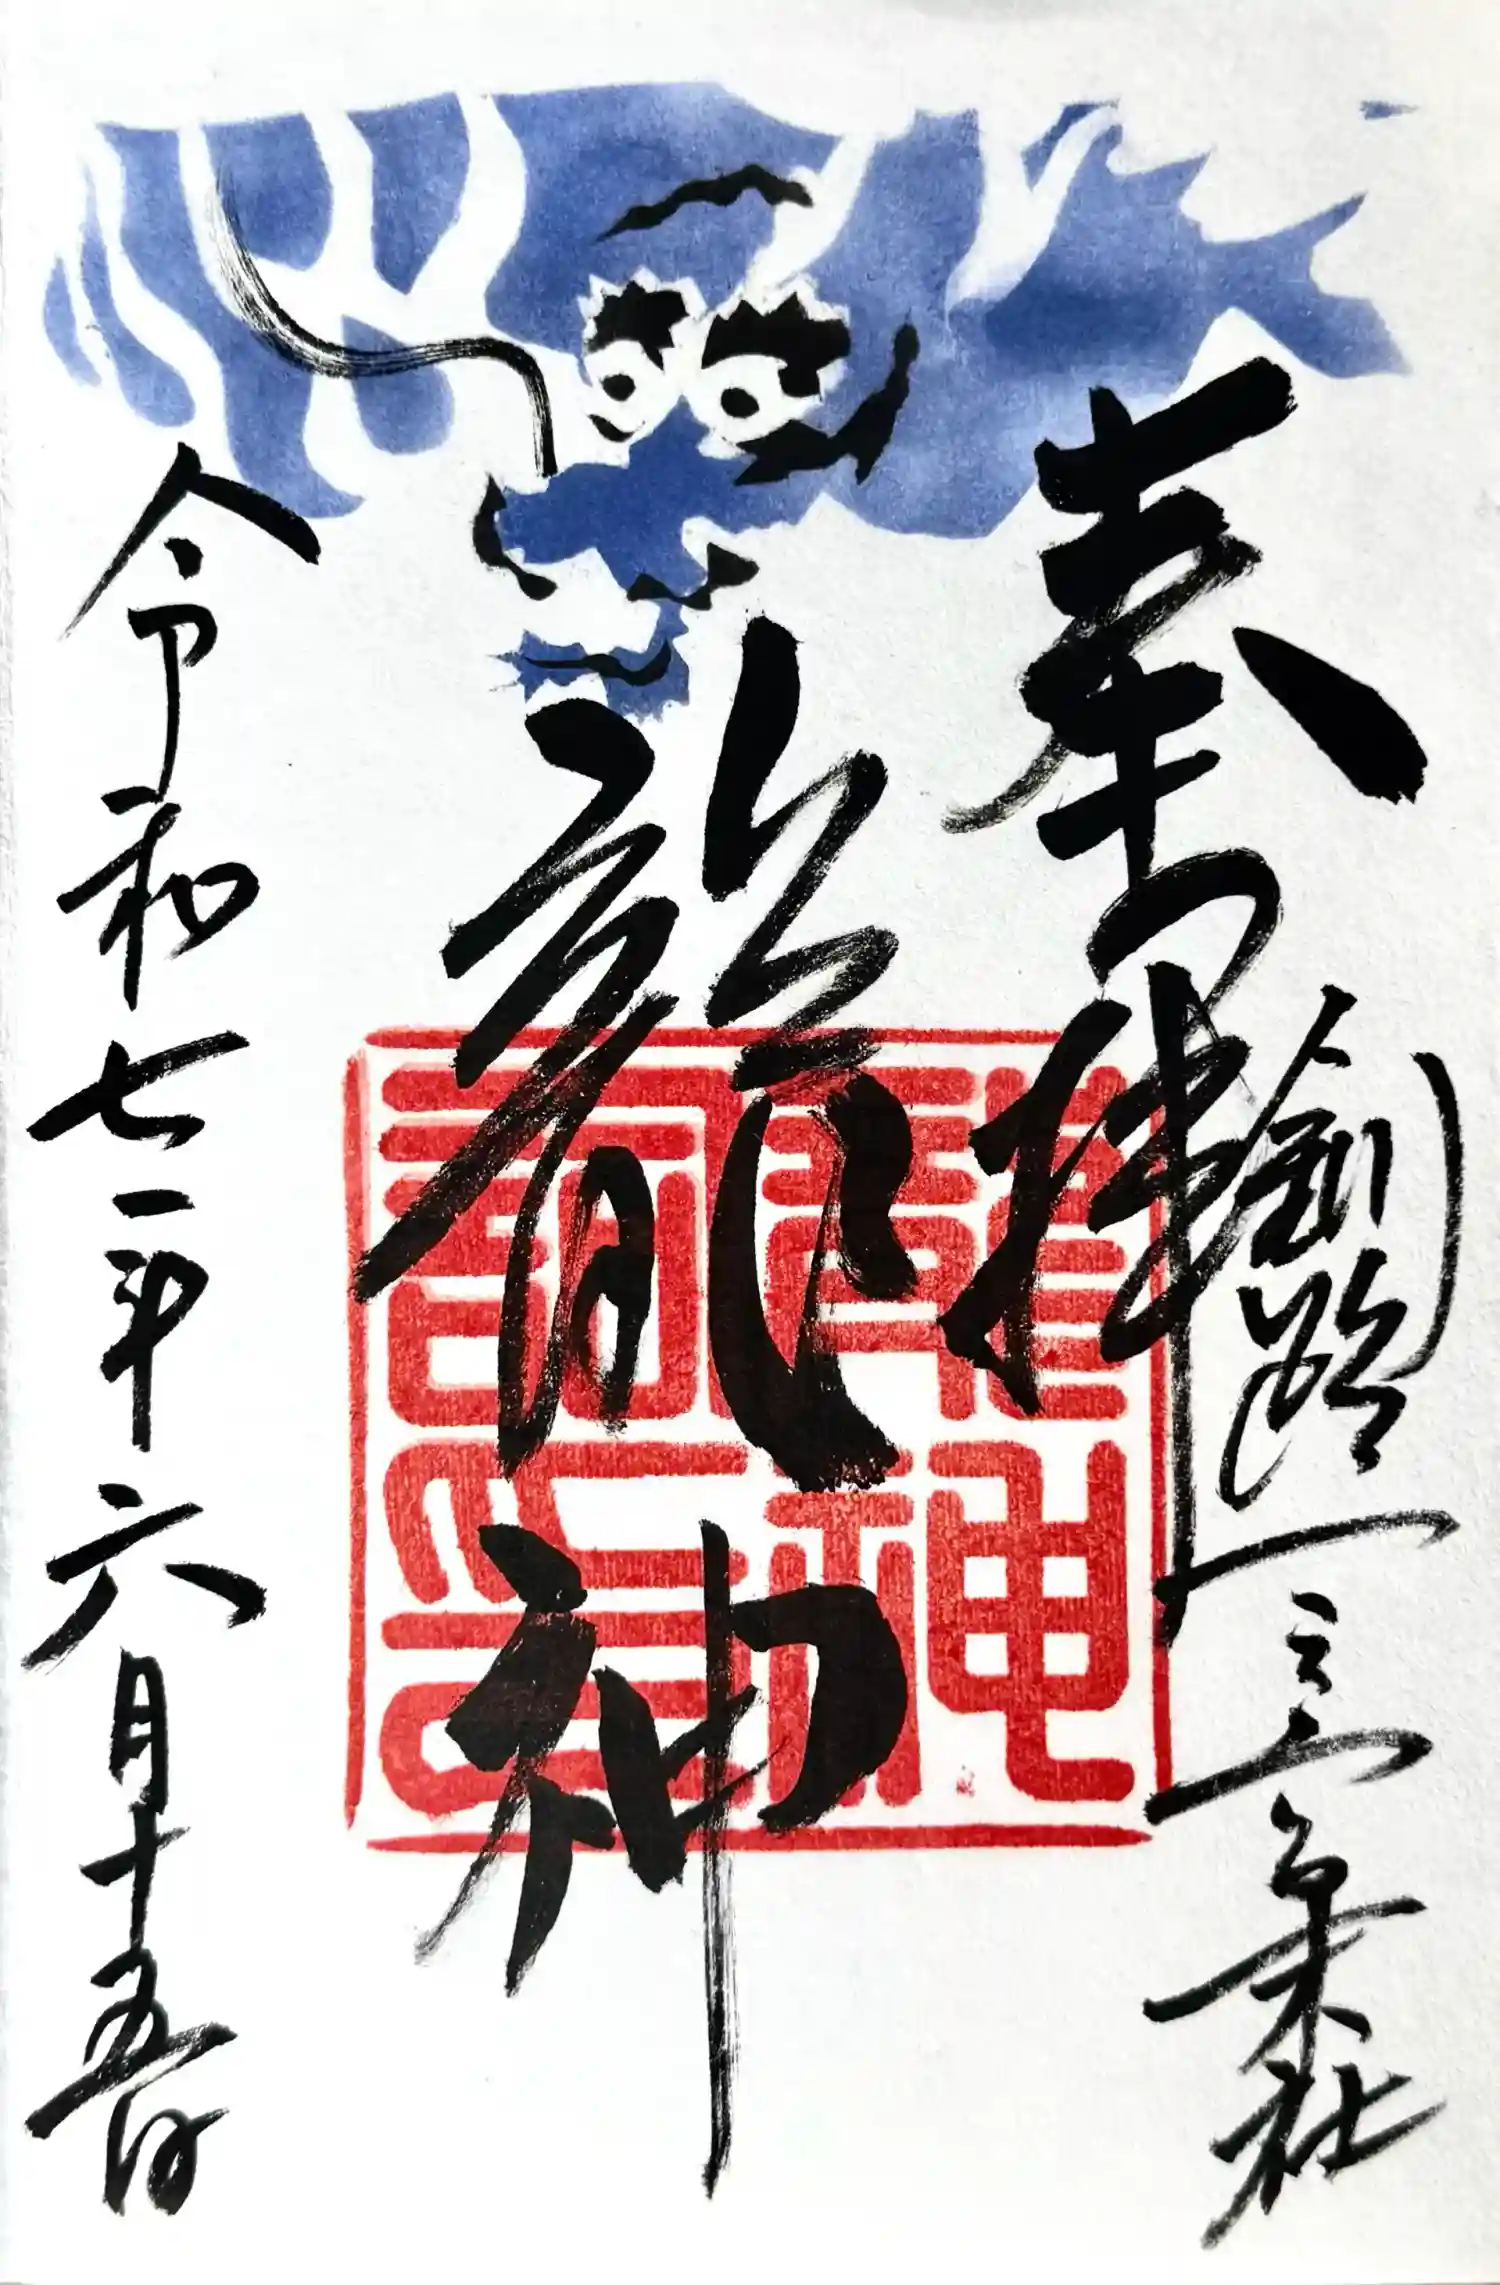 奉拝
釧路一之宮末社
龍神
令和七年六月十五日